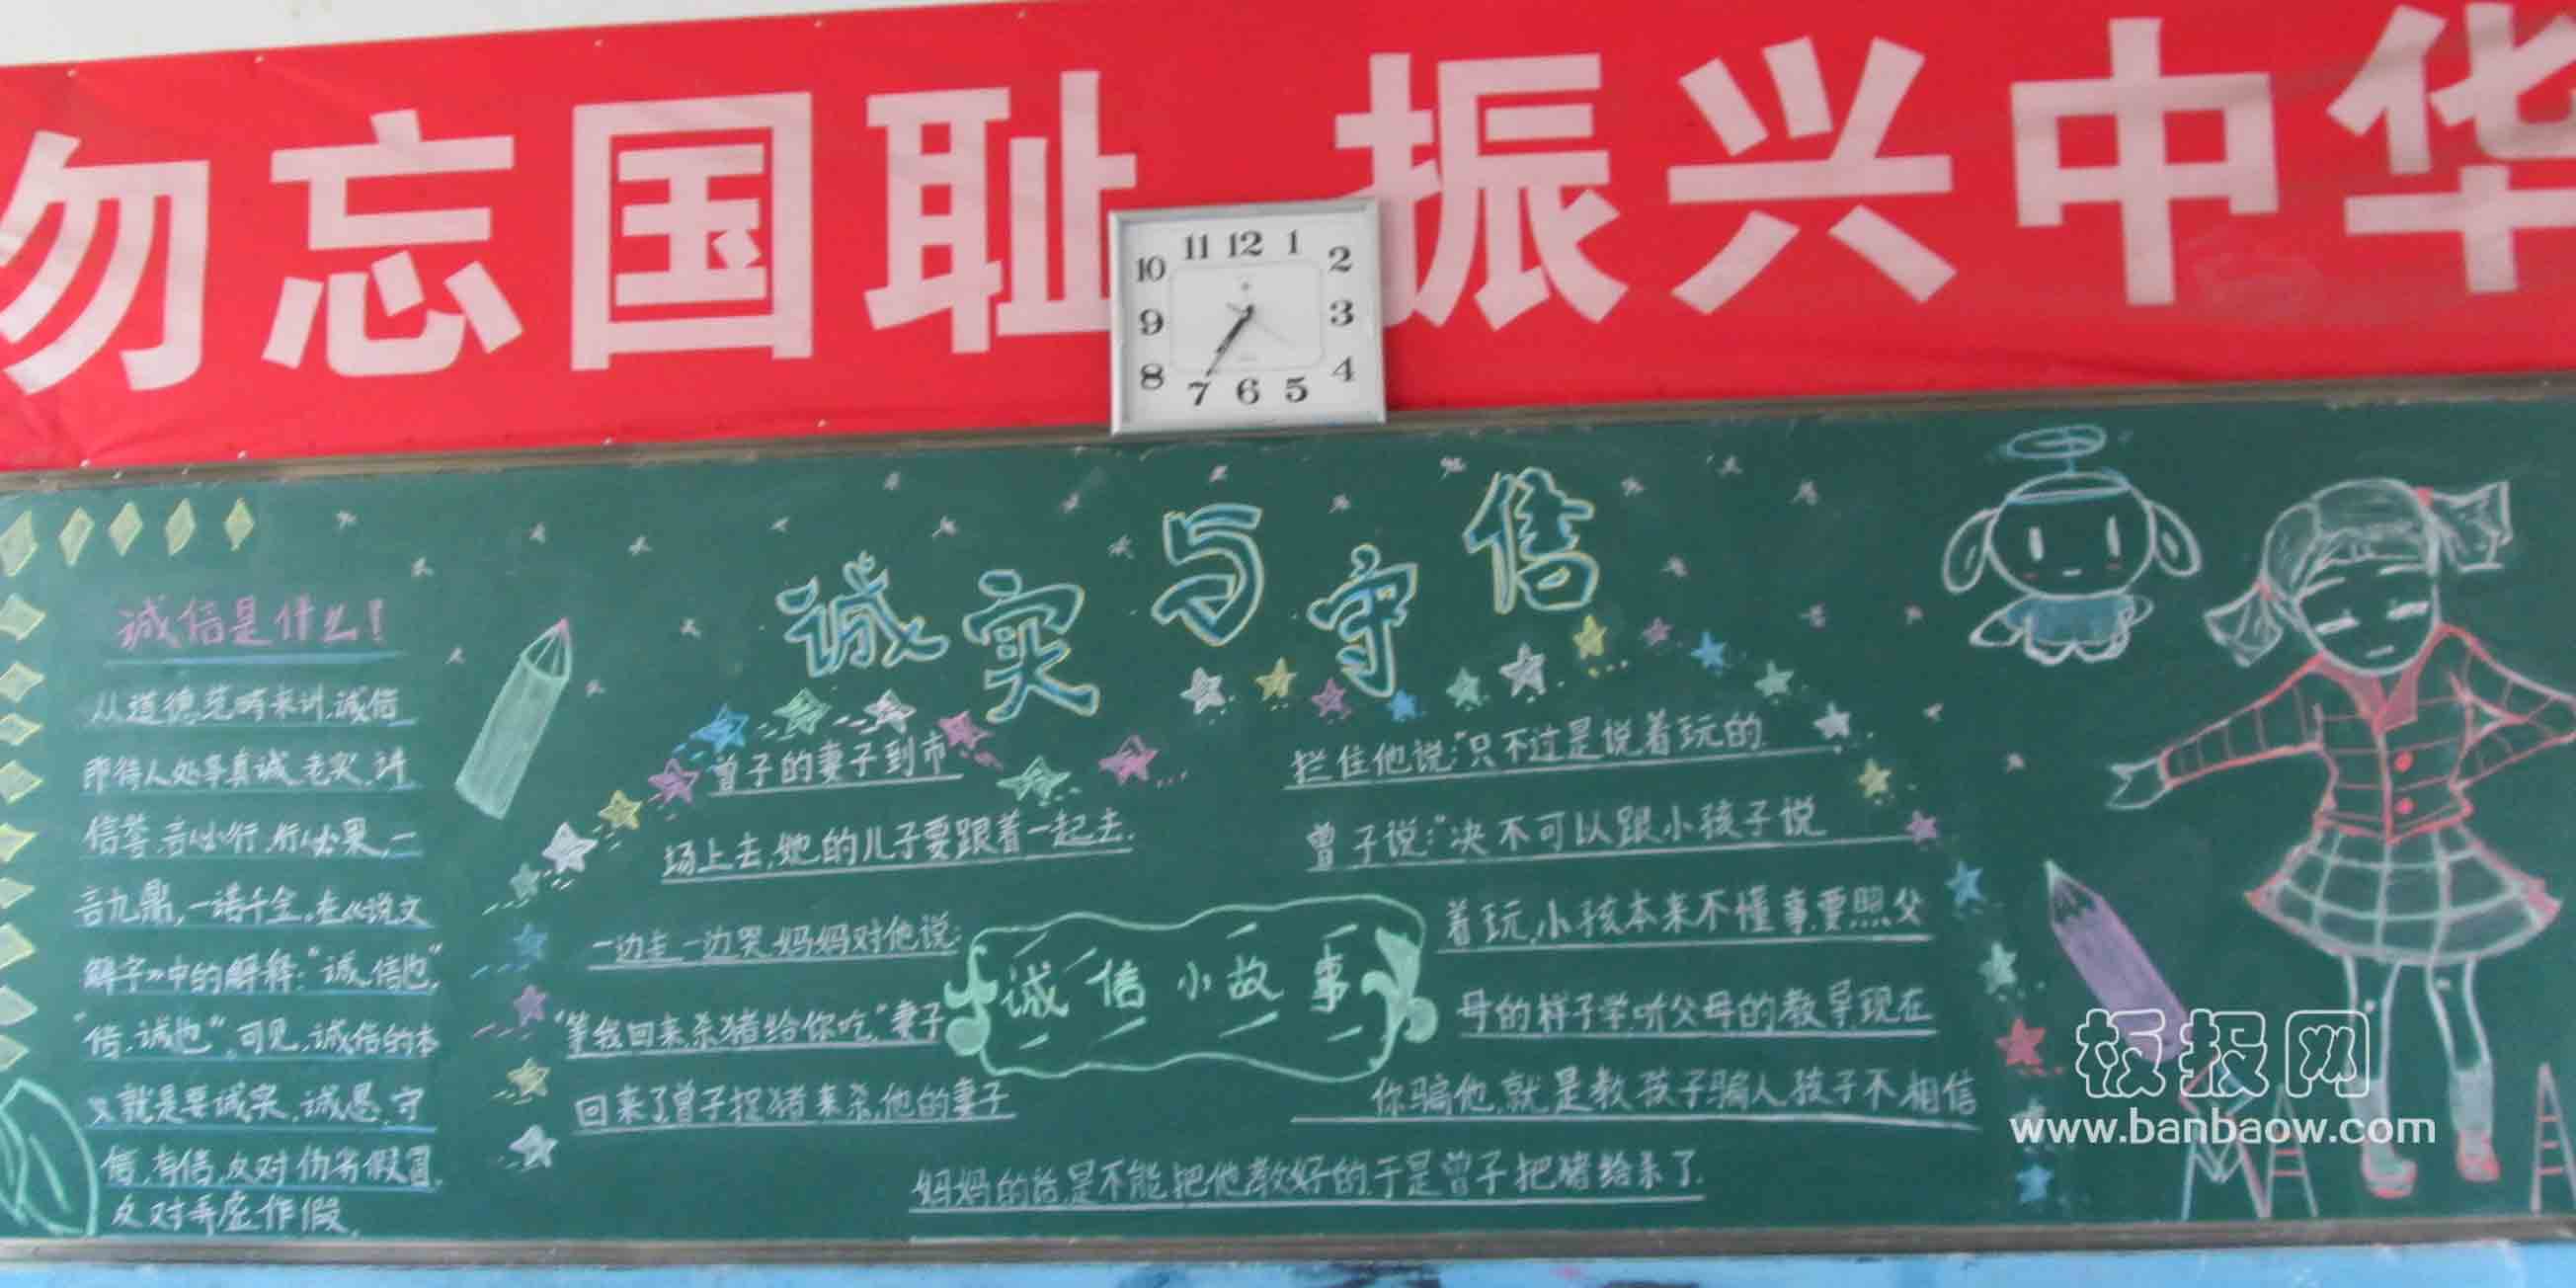 勿忘国耻 振兴中华
11 12 1
10 2
9 3
8 4
7 6 5
诚实与守信
诚信是什么!
从道德范畴来讲,诚信
即待人处事真诚、老实、讲
信誉,言必行,行必果,一
言九鼎,一诺千金。在《说文
解字》中的解释:“诚,信也”
“信,诚也”,可见,诚信的本
义就是要诚实、诚恳、守
信、有信,反对伪劣假冒,
反对弄虚作假。
曾子的妻子到市
场上去,她的儿子要跟着一起去.
一边走一边哭.妈妈对他说:
“等我回来杀猪给你吃”妻子
回来了曾子捉猪来杀,他的妻子
诚信小故事
拦住他说:“只不过是说着玩的
曾子说:“决不可以跟小孩子说
着玩,小孩本来不懂事,要照父
母的样子学,听父母的教导,现在
你骗他,就是教孩子骗人,孩子不相信
妈妈的话,是不能把他教好的,于是曾子把猪给杀了.
板报网
www.banbaow.com